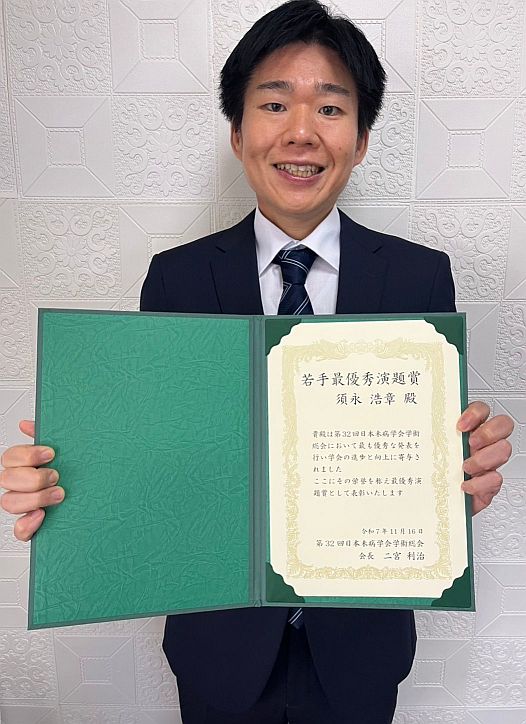 若手最優秀演題賞
須永 浩章 殿
貴殿は第32回日本未病学会学術
総会において最も優秀な発表を
行い学会の進歩と向上に寄与さ
れました
ここにその栄誉を称え最優秀演
題賞として表彰いたします
令和7年11月16日
第32回日本未病学会学術総会
会長 二宮 利治